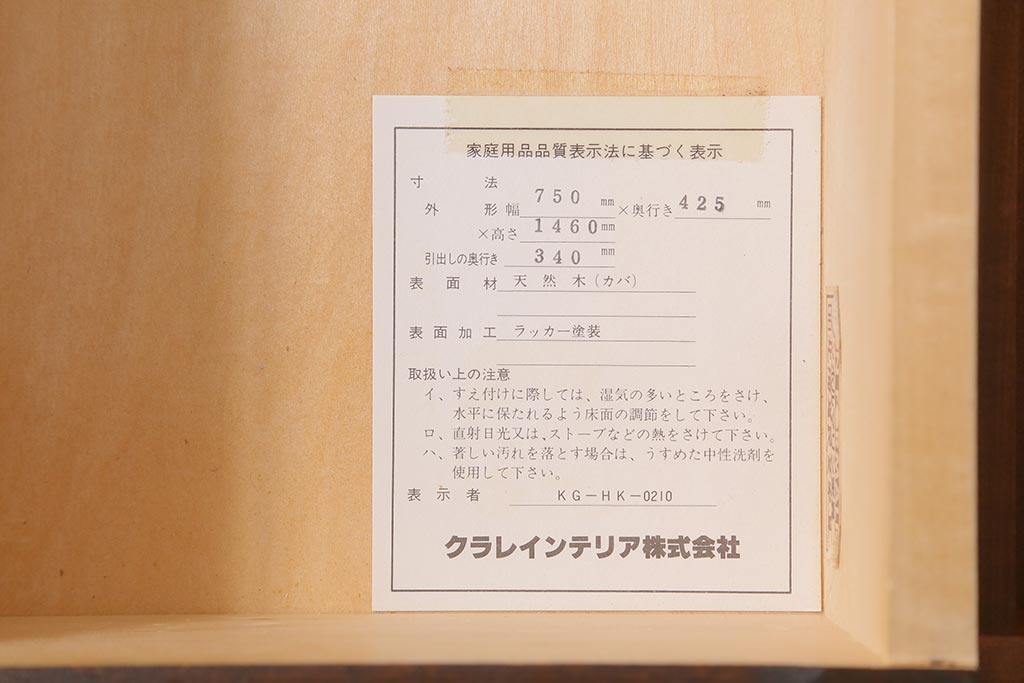 家庭用品品質表示法に基づく表示
寸法
外形 幅 750 mm ×奥行き 425 mm
×高さ 1460 mm
引出しの奥行き 340 mm
表面材 天然木(カバ)
表面加工 ラッカー塗装
取扱い上の注意
イ、すえ付けに際しては、湿気の多いところをさけ、
水平に保たれるよう床面の調節をして下さい。
ロ、直射日光又は、ストーブなどの熱をさけて下さい。
ハ、著しい汚れを落とす場合は、うすめた中性洗剤を
使用して下さい。
表示者 KG-HK-0210
クラレインテリア株式会社